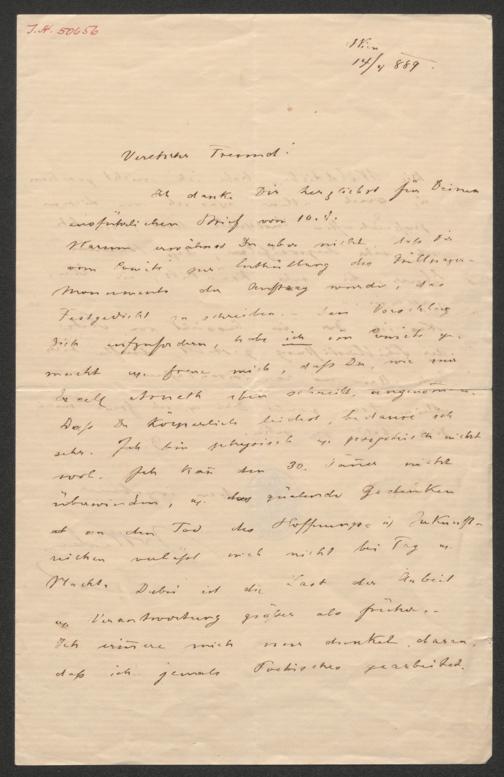 J.N. 50656
Wien
14/4 889.
Verehrter Freund!
Ich danke Dir herzlichst für Deinen
ausführlichen Brief vom 10. d.
Warum erwähnst Du aber nicht, daß Dir
vom Comité zur Enthüllung des Grillparzer-
Monuments der Auftrag wurde, das
Festgedicht zu schreiben. Den Vorschlag
Dich aufzufordern, habe ich im Comité ge-
macht u. freue mich, daß Du, wie mir
Excell Arneth eben schreibt, angenommen.
Daß Du körperlich leidest, bedaure ich
sehr. Ich bin physisch u. psychisch nicht
wol. Ich kan̅ den 30. Jäner nicht
überwinden, u. der quälende Gedanken
an den Tod des Hoffnungs= u. Zukunft=
reichen verläßt mich nicht bei Tag u.
Nacht. Dabei ist die Last der Arbeit
u. Verantwortung größer als früher.
Ich erin̅ere mich nur dunkel daran,
daß ich jemals Poetisches gearbeitet.